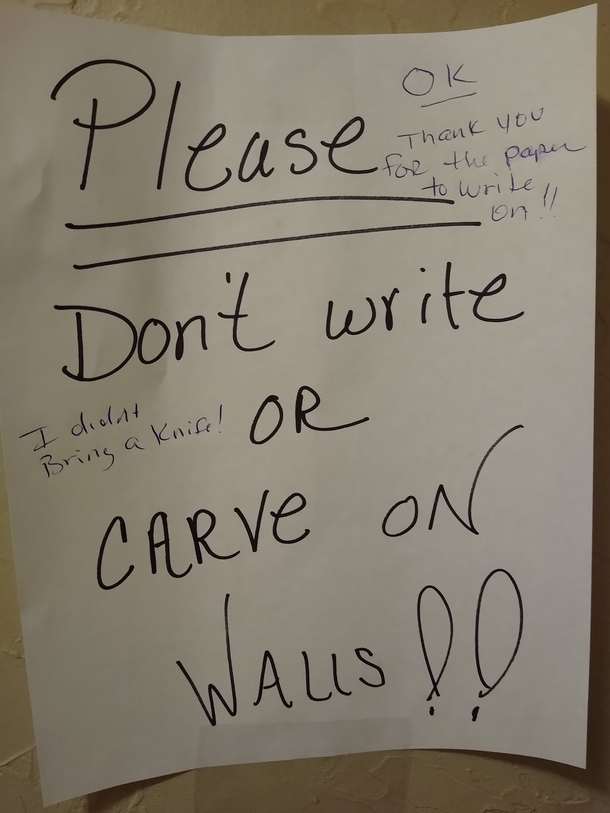 Please
OK
Thank you
for the paper
to write
on!!
Don't write
OR
I didn't
Bring a knife!
CARVE ON
WALLS!!